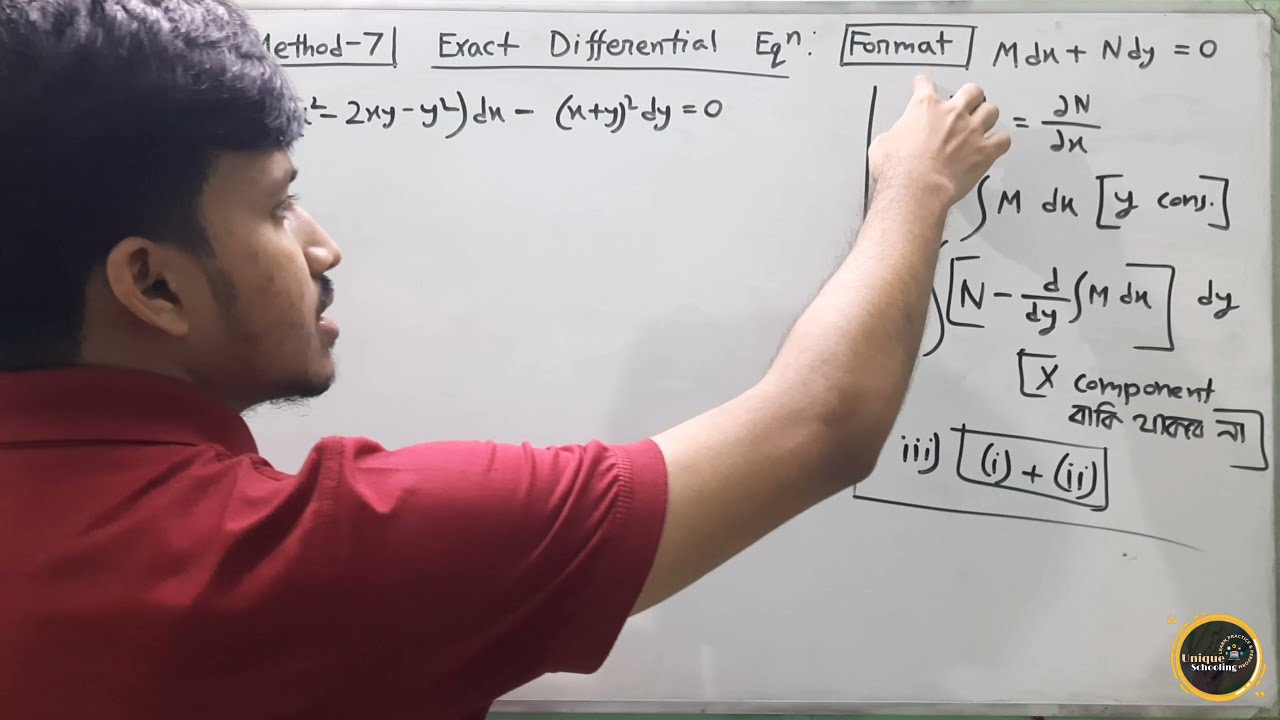 Method-7 Exact Differential Eqⁿ: Format Mdx + Ndy = 0
x² - 2xy - y²) dx - (x+y)² dy = 0
= ∂N/∂x
∫ M dx [y cons.]
∫ [N - d/dy ∫ M dx] dy
[X component
বাকি থাকবে না]
iii) (i) + (ii)
Unique
Schooling